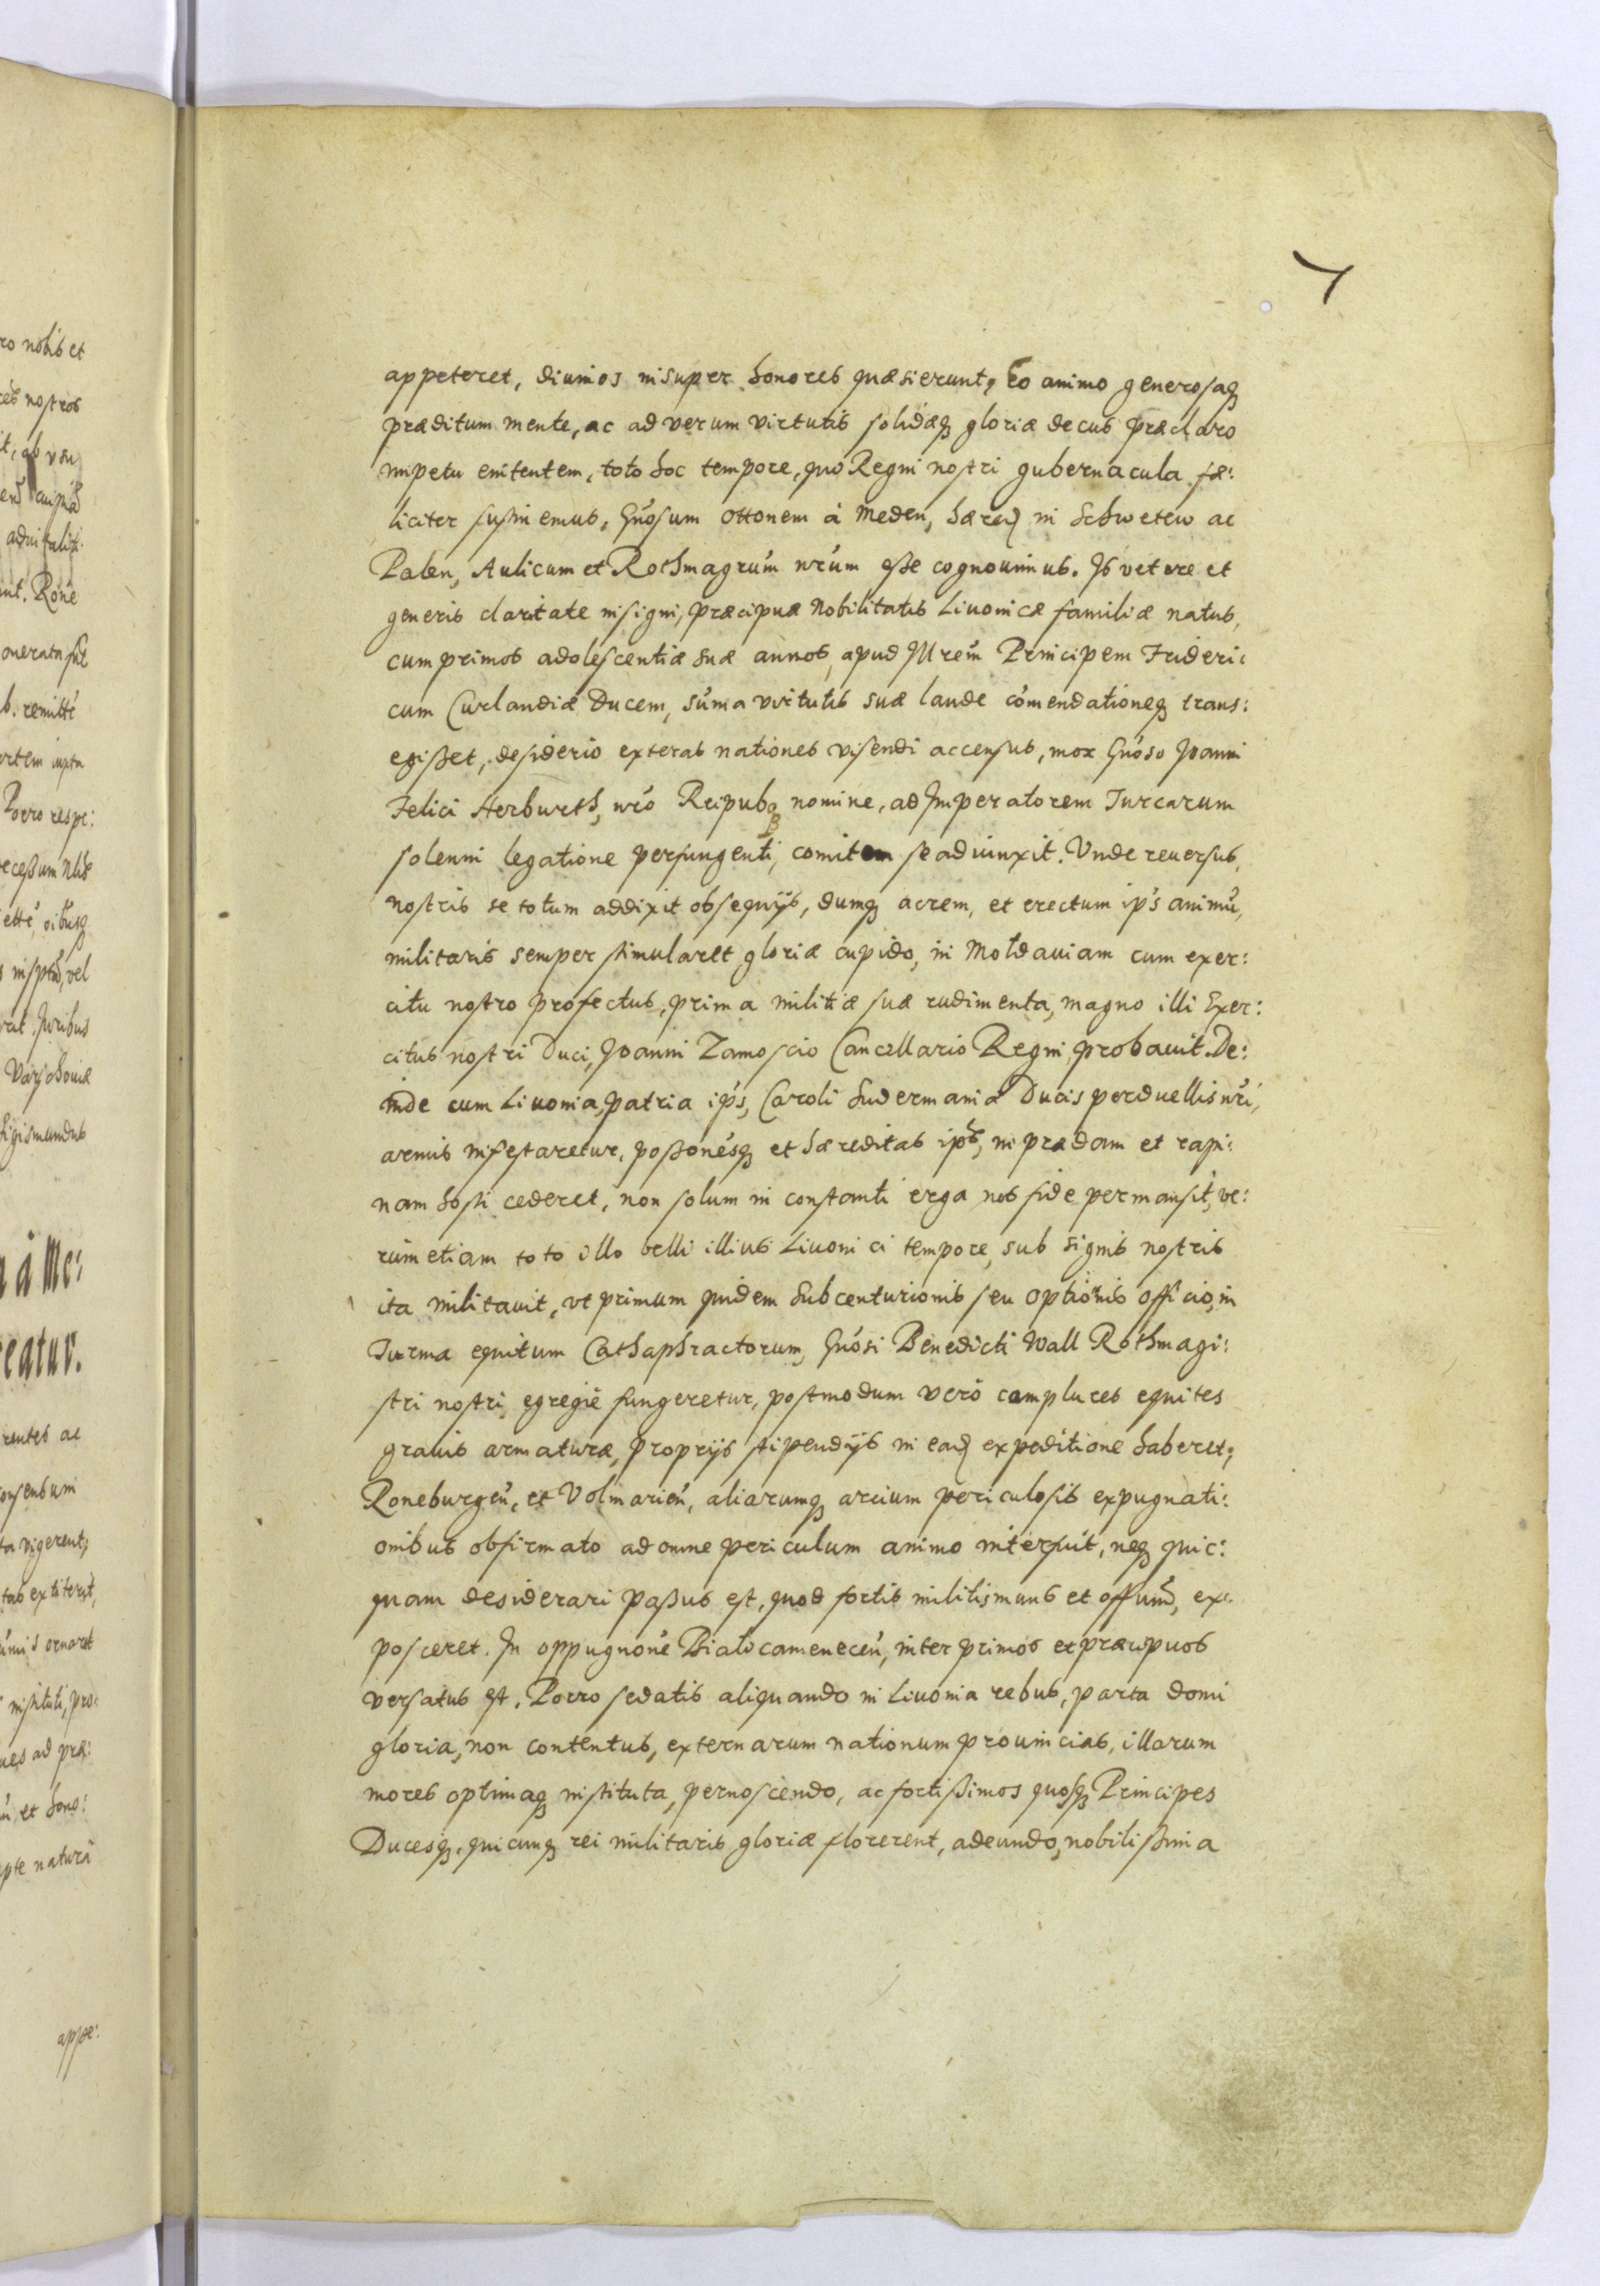 7
appeteret, diuinos insuper honores quæsierunt, Eo animo generosaq
præditum mente, ac ad verum virtutis solidæq gloriæ decus præclaro
impetu enitentem, toto hoc tempore, quo Regni nostri gubernacula fæ:
liciter sustinemus, Gnósum Ottonem à Meden, hæred in Schweten ac
Palen, Aulicum et Rothmagrúm nrúm esse cognouimus. Is vetere et
generis claritate insigni, præcipuæ Nobilitatis Liuonicæ familiæ natus,
cum primos adolescentiæ suæ annos, apud Illrem Principem Frideri:
cum Curlandiæ Ducem, súma virtutis suæ laude cómendationeq trans:
egisset, desiderio exteras nationes visendi accensus, mox Gnóso Joanni
Felici Herburth, nró Reipub nomine, ad Imperatorem Turcarum
solenni legatione perfungenti, comitem se adiunxit. Vnde reuersus,
nostris se totum addixit obsequijs, dumq acrem, et erectum ips animú,
militaris semper stimularet gloriæ cupido, in Moldauiam cum exer:
citu nostro profectus, prima militiæ suæ rudimenta, magno illi Exer:
citus nostri Duci, Joanni Zamoscio Cancellario Regni probauit. De:
inde cum Liuonia, patria ips, Caroli Sudermaniæ Ducis perduellis nri,
armis infestaretur, possonésq et hæreditas ips, in prædam et rapi:
nam hosti cederet, non solum in constanti erga nos fide permansit, ve:
rum etiam toto illo belli illius Liuonici tempore, sub signis nostris
ita militauit, vt primum quidem Subcenturionis seu Optionis officio, in
Turma equitum Cathaphractorum, Gnósi Benedicti Wall Rothmagi:
stri nostri, egregiè fungeretur, postmodum verò complures equites
grauis armaturæ, proprijs stipendijs in ead expeditione haberet;
Roneburgeñ, et Volmarieñ, aliarumq arcium periculosis expugnati:
onibus obfirmato ad omne periculum animo interfuit, neq quic:
quam desiderari passus est, quod fortis militis munus et offium, ex:
posceret. In oppugnone Bialocameneceñ, inter primos et præcipuos
versatus est. Porro sedatis aliquando in Liuonia rebus, parta domi
gloria, non contentus, externarum nationum prouincias, illarum
mores optimaq instituta, pernoscendo, ac fortissimos quosq Principes
Ducesq, quicunq rei militaris gloriæ florerent, adeundo, nobilissima